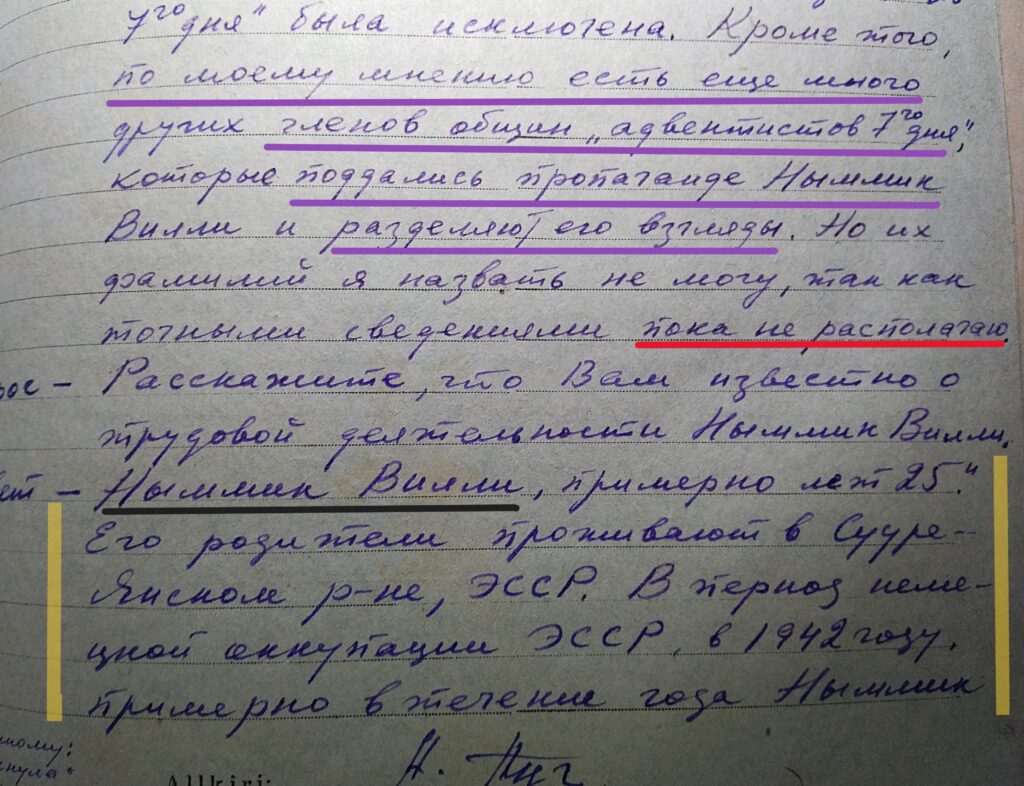 7го дня" была исключена. Кроме того,
по моему мнению есть еще много
других членов общин „адвентистов 7го дня",
которые поддались пропаганде Ныммик
Вилли и разделяют его взгляды. Но их
фамилий я назвать не могу, так как
точными сведениями пока не располагаю.
рос – Расскажите, что Вам известно о
трудовой деятельности Ныммик Вилли.
вет – Ныммик Вилли, примерно лет 25."
Его родители проживают в Сууре-
Янском р-не, ЭССР. В период неме-
цкой оккупации ЭССР, в 1942 году,
примерно в течение года Ныммик
ному:
кнула"
Allkiri: